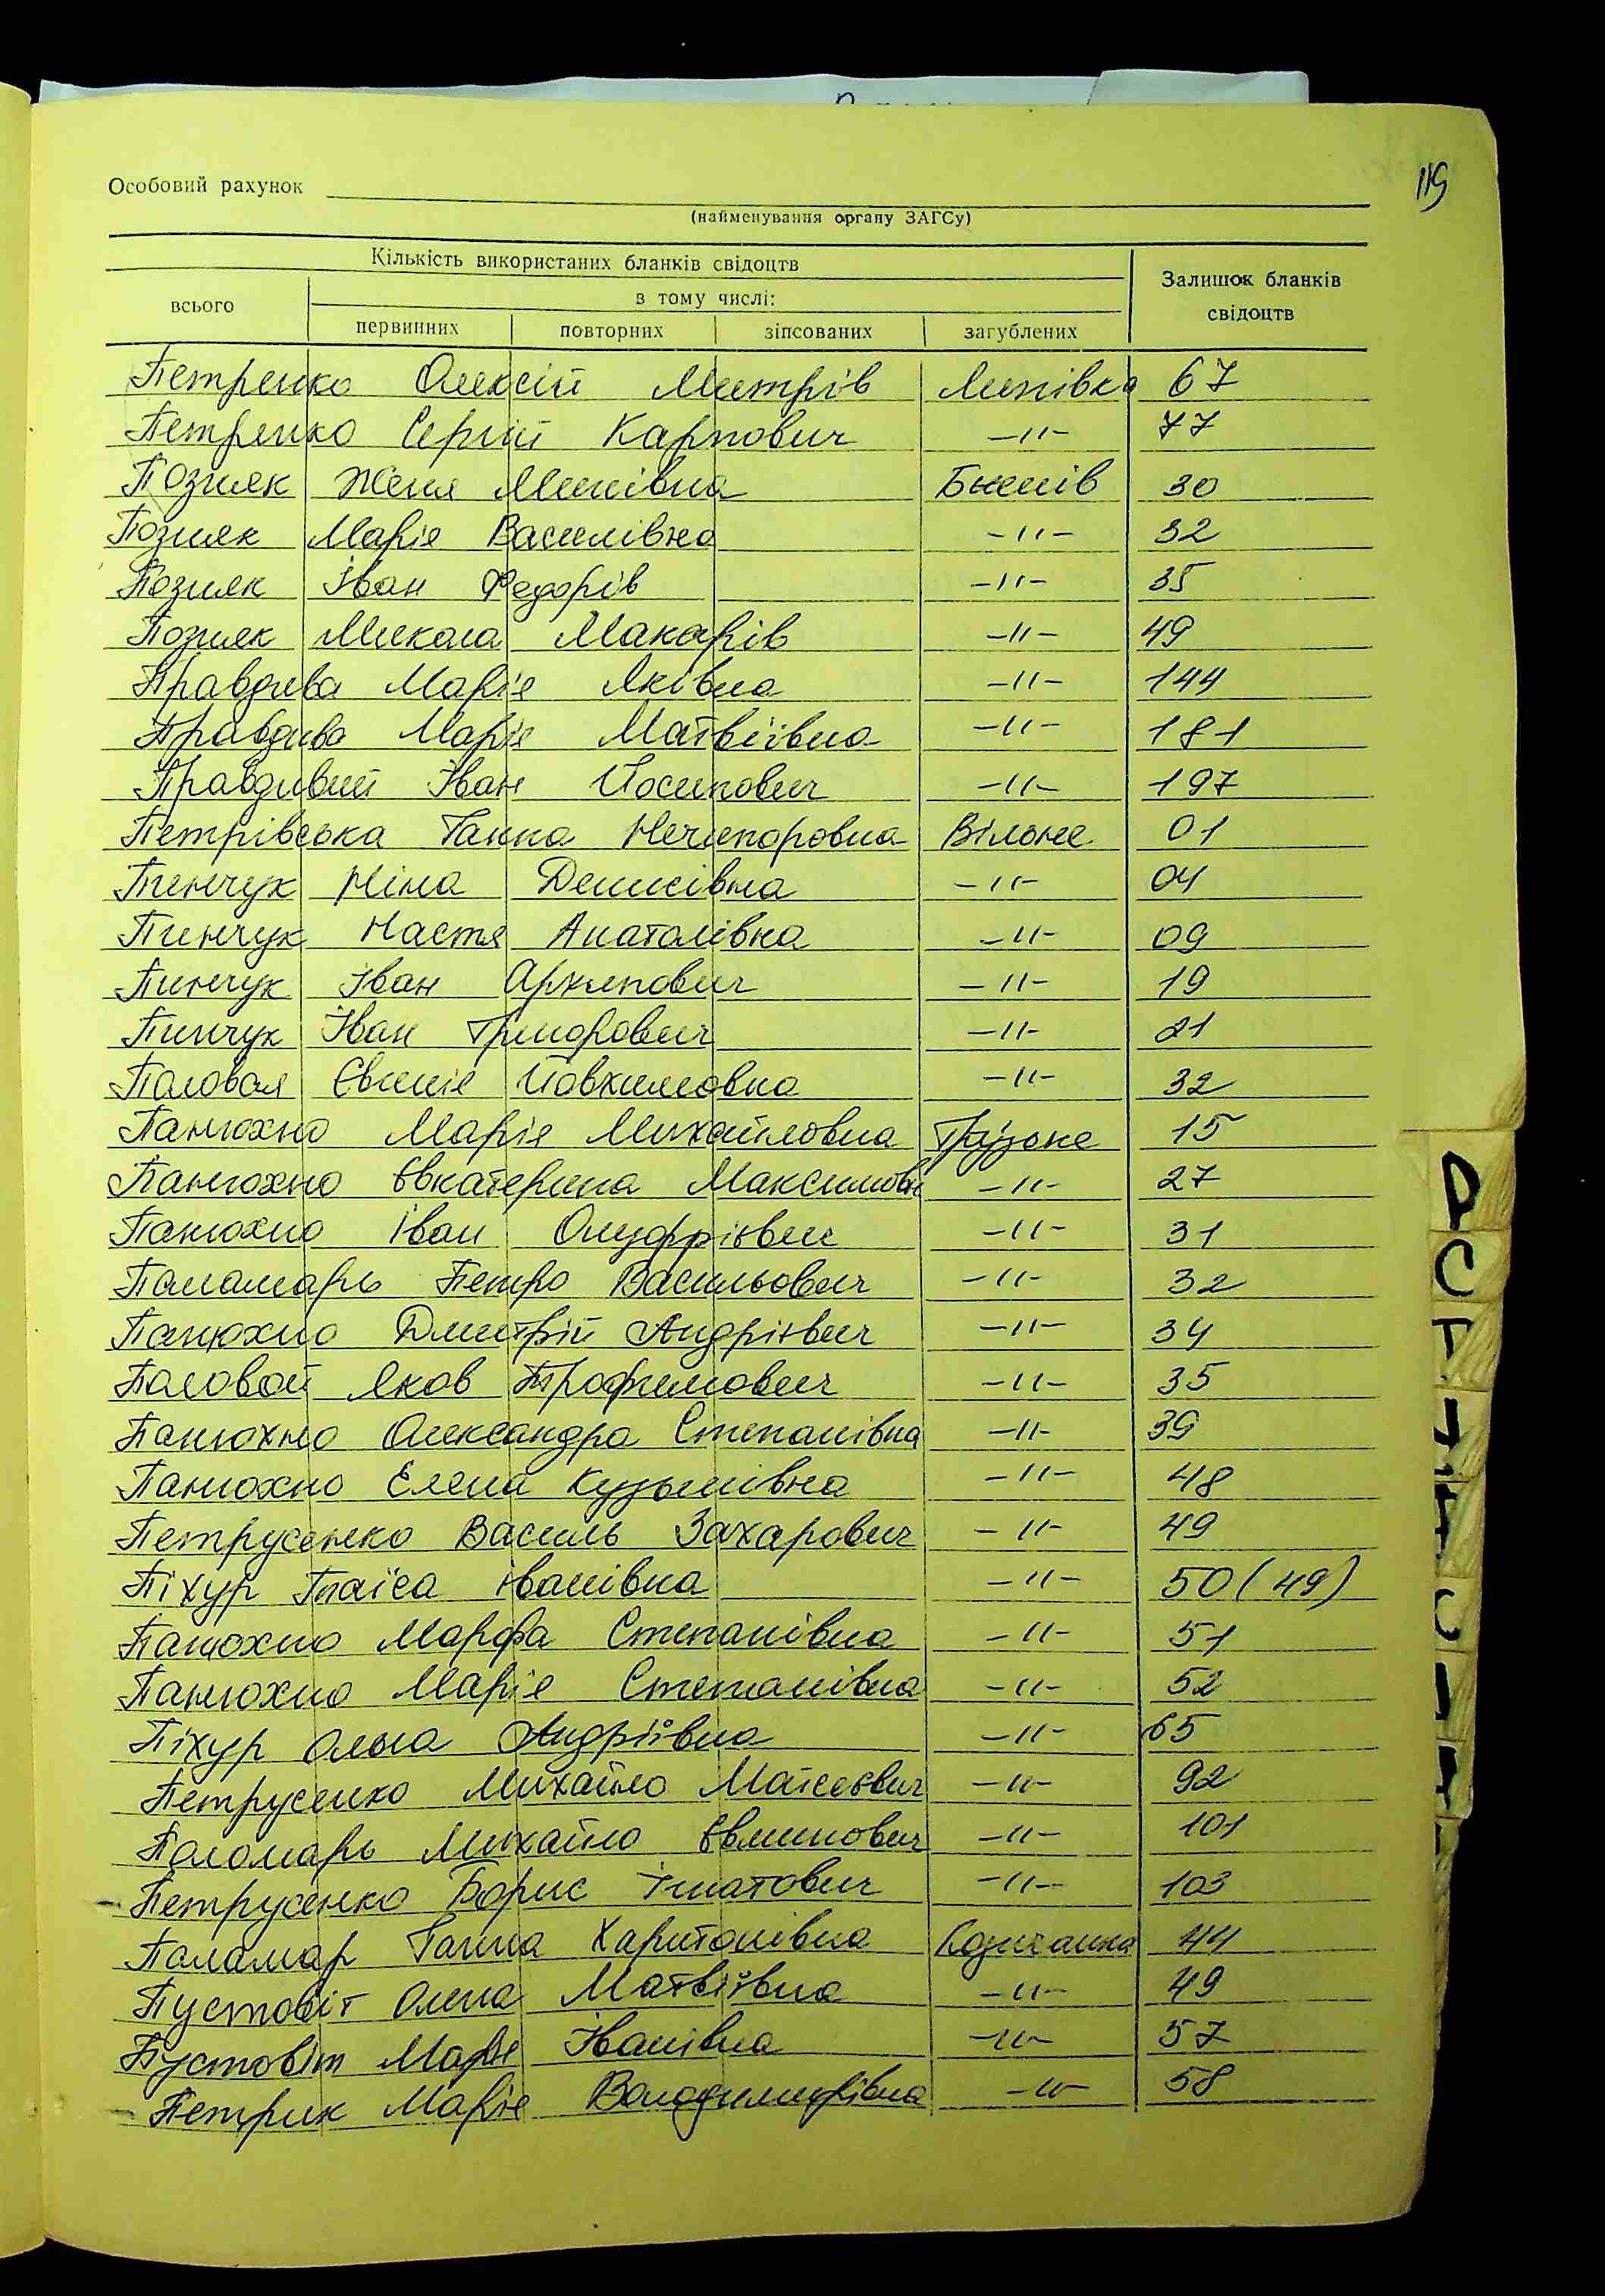 119
Особовий рахунок
(найменування органу ЗАГСу)
Кількість використаних бланків свідоцтв
Залишок бланків свідоцтв
всього
в тому числі:
первинних повторних зіпсованих загублених
Петренко Олексій Митрів Липівка 67
Петренко Сергій Карпович -"- 77
Позняк Женя Минівна 30
Позняк Марія Василівна -"- 32
Позняк Іван Федорів -"- 35
Позняк Микола Макарів -"- 49
Правдива Марія Яківна -"- 144
Правдива Марія Матвіївна -"- 181
Правдивий Іван Йосипович -"- 197
Петрівська Ганна Нечипоровна Вільне 01
Пинчук Ніна Денисівна -"- 04
Пинчук Настя Анатолівна -"- 09
Пинчук Іван Архипович -"- 19
Пинчук Іван Григорович -"- 21
Паловая Євгенія Йовхимовна -"- 32
Панюхно Марія Михайловна Грузьке 15
Панюхно Євкатерина Максимовн -"- 27
Панюхно Іван Онуфрієвич -"- 31
Паламарь Петро Васильович -"- 32
Панюхно Дмитрій Андрієвич -"- 34
Паловой Яков Трофимович -"- 35
Панюхно Олександра Степанівна -"- 39
Панюхно Елена Кузьмівна -"- 48
Петрусенко Василь Захарович -"- 49
Піхур Таїса Іванівна -"- 50 (49)
Панюхно Марфа Степанівна -"- 51
Панюхно Марія Степанівна -"- 52
Піхур Ольга Андріївна -"- 65
Петрусенко Михайло Мойсеєвич -"- 92
Паломарь Михайло -"- 101
Петрусенко Борис Ігнатович -"- 103
Паламар Ганна Харитонівна Кодиганка 44
Пустовіт Олена Матвіївна -"- 49
Пустовіт Марія Іванівна -"- 57
Петрик Марія Володимирівна -"- 58